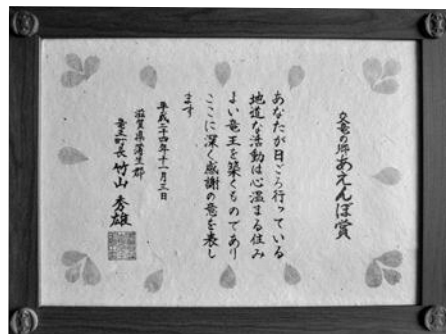 交竜の郷あえんぼ賞
あなたが日ごろ行っている
地道な活動は心温まる住み
よい竜王を築くものであり
ここに深く感謝の意を表し
ます
平成二十四年十一月三日
滋賀県蒲生郡
竜王町長 竹山秀雄